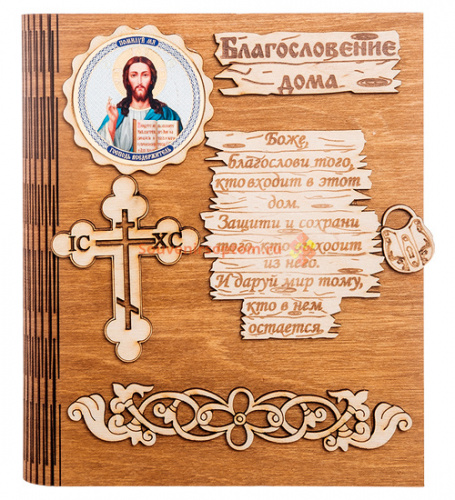 помилуй мя
Господь вседержитель
Благословение
дома
IC XC
Боже,
благослови того,
кто входит в этот
дом.
Защити и сохрани
того, кто выходит
из него.
И даруй мир тому,
кто в нем
остается.